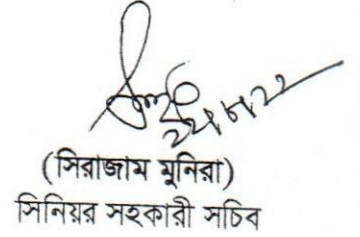 (সিরাজাম মুনিরা)
সিনিয়র সহকারী সচিব